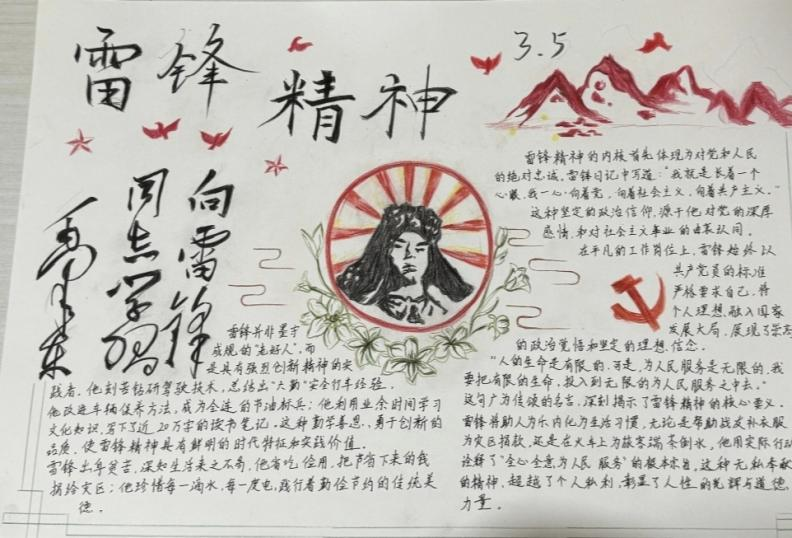 雷锋
精神
3.5
向雷锋
同志学习
毛泽东
雷锋精神的内核首先体现为对党和人民
的绝对忠诚。雷锋日记中写道:“我就是长着一个
心眼,我一心向着党,向着社会主义,向着共产主义。”
这种坚定的政治信仰,源于他对党的深厚
感情和对社会主义事业的由衷认同。
在平凡的工作岗位上,雷锋始终以
共产党员的标准
严格要求自己,将
个人理想融入国家
发展大局,展现了崇高
的政治觉悟和坚定的理想信念。
“人的生命是有限的,可是,为人民服务是无限的,我
要把有限的生命,投入到无限的为人民服务之中去。”
这句广为传颂的名言,深刻揭示了雷锋精神的核心要义。
雷锋并助人为乐内化为生活习惯,无论是帮助战友补衣服
为灾区捐款,还是在火车上为旅客端茶倒水,他用实际行动
诠释了“全心全意为人民服务”的根本宗旨,这种无私奉献
的精神,超越了个人私利,彰显了人性的光辉与道德
力量。
雷锋并非墨守
成规的“老好人”,而
是具有强烈创新精神的实
践者。他刻苦钻研驾驶技术,总结出“六勤”安全行车经验,
他改进车辆保养方法,成为全连的节油标兵;他利用业余时间学习
文化知识,写下了近20万字的读书笔记。这种勤学善思、勇于创新的
品质,使雷锋精神具有鲜明的时代特征和实践价值。
雷锋出身贫苦,深知生活来之不易,他省吃俭用,把节省下来的钱
捐给灾区;他珍惜每一滴水,每一度电,践行着勤俭节约的传统美
德。